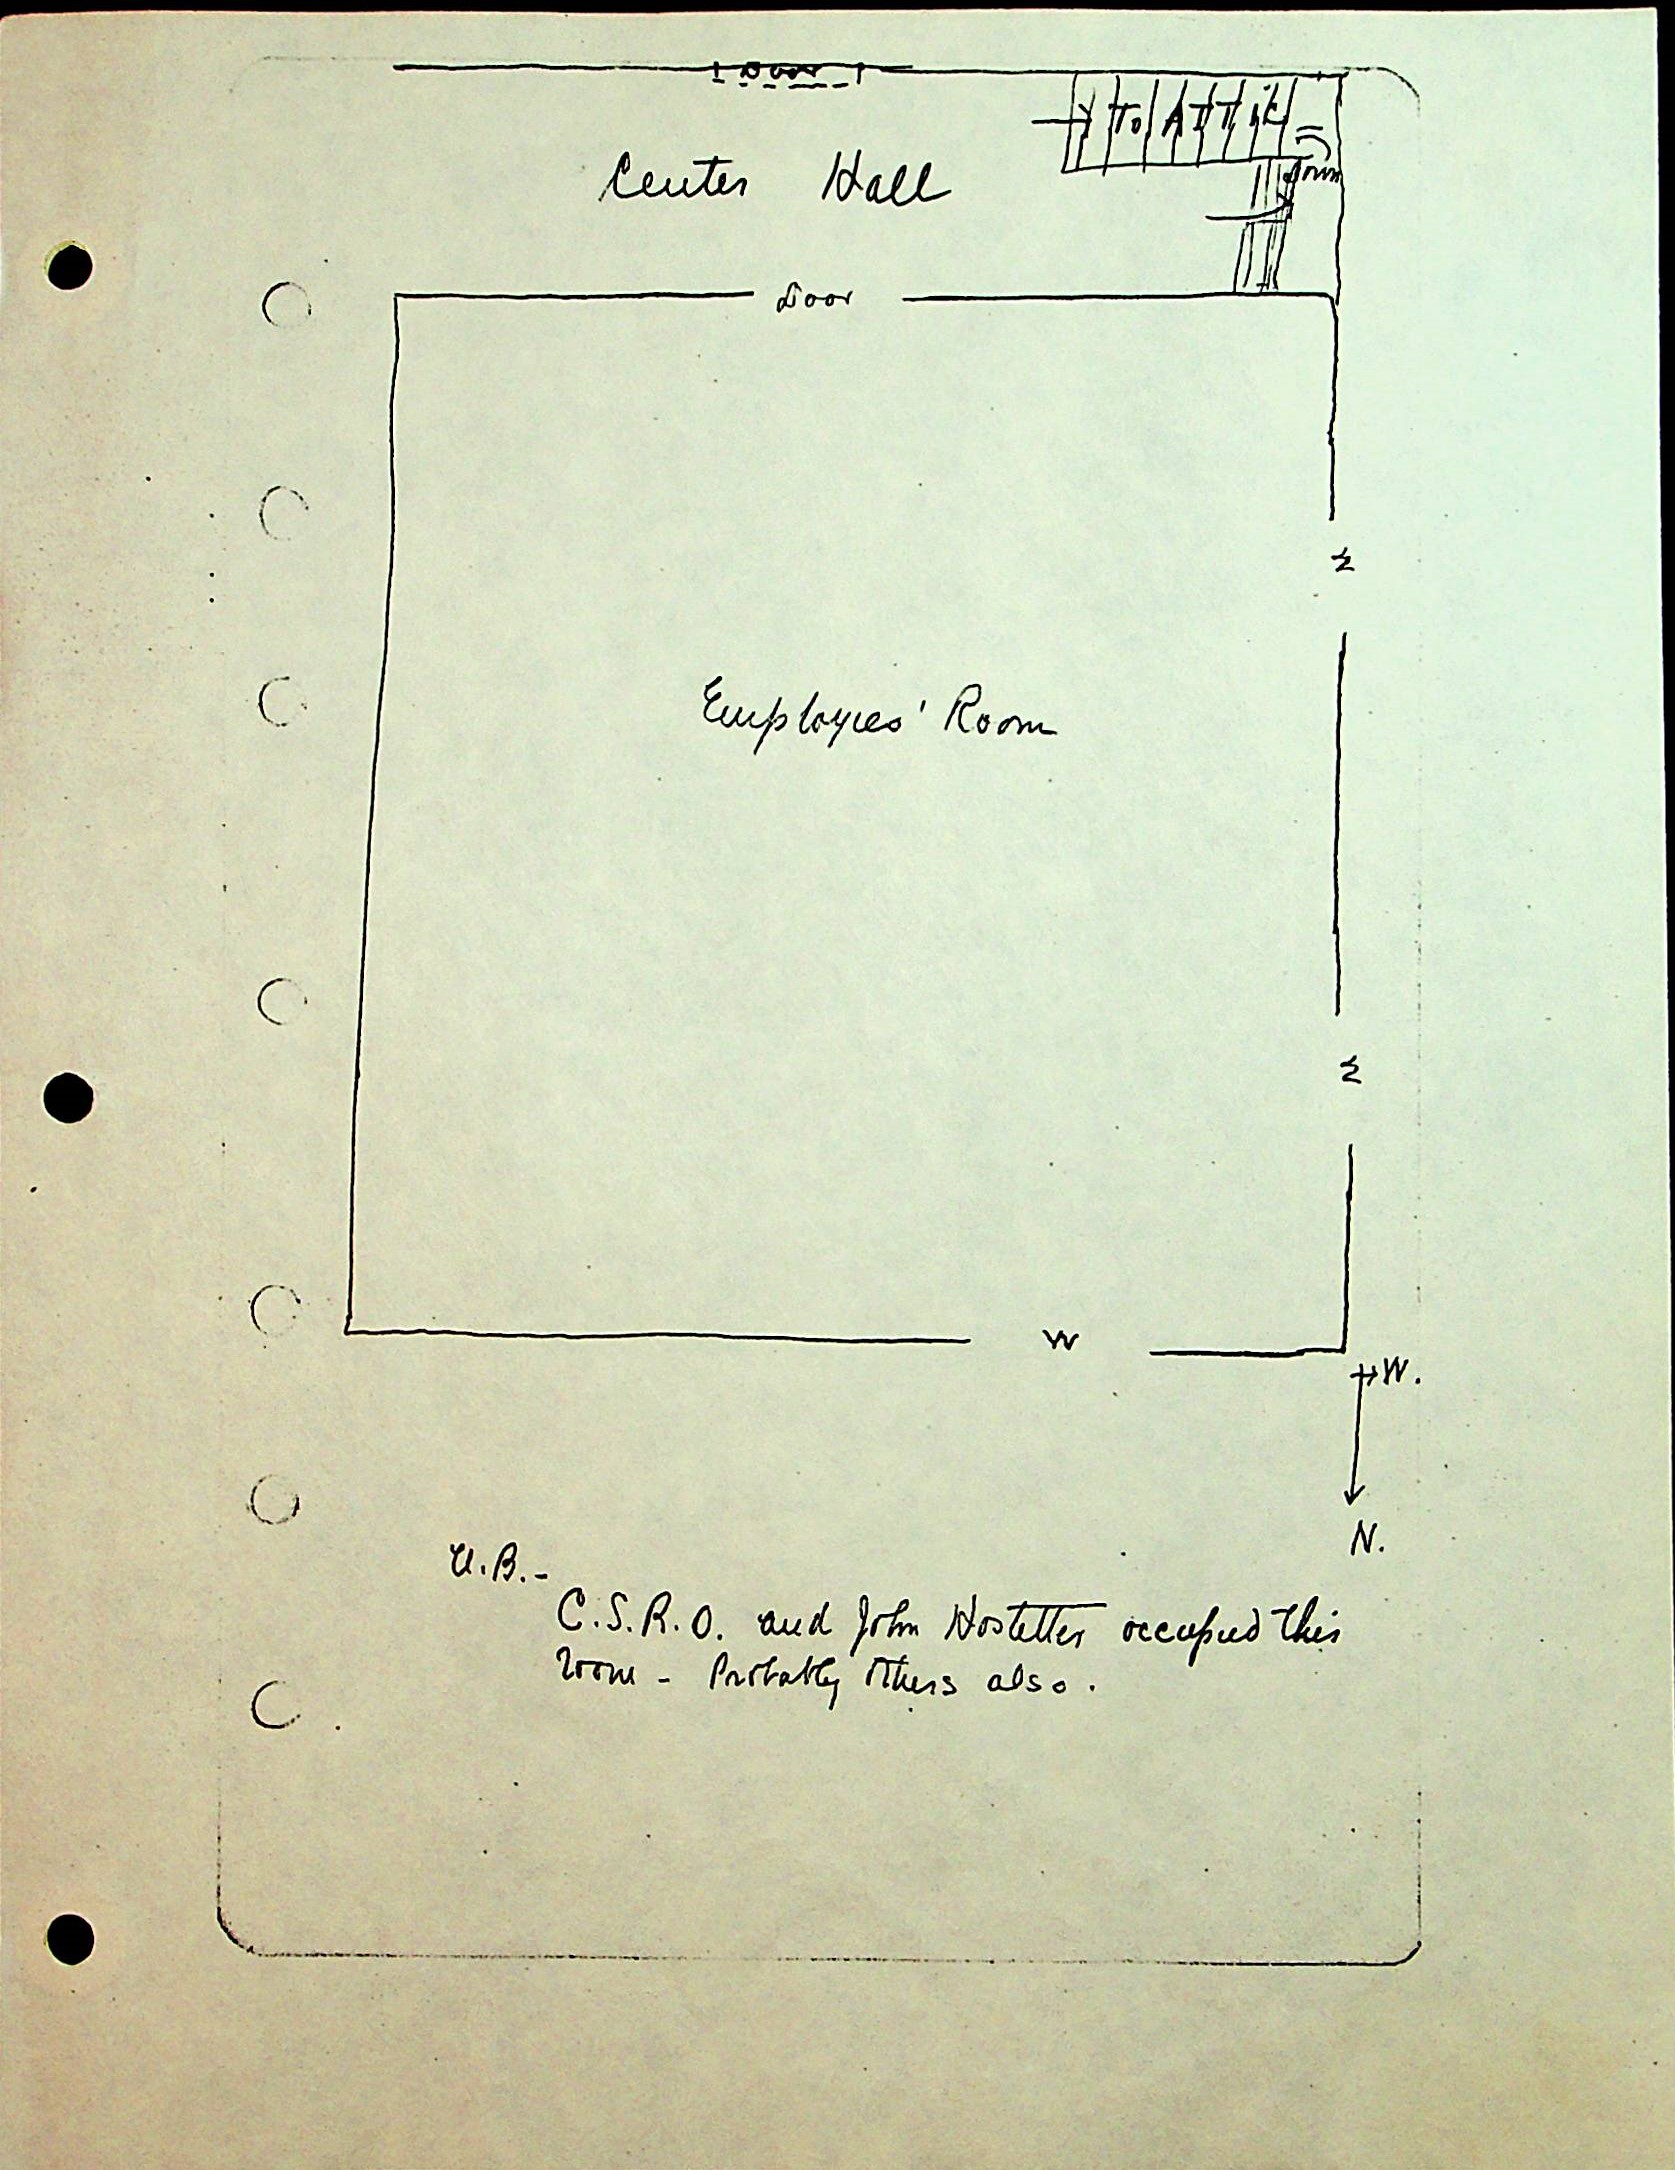 Door
To ATTIC
Down
Center Hall
Door
W
Employees' Room
W
W
W.
N.
N.B.-
C.S.R.O. and John Hostetter occupied this
room - Probably others also.